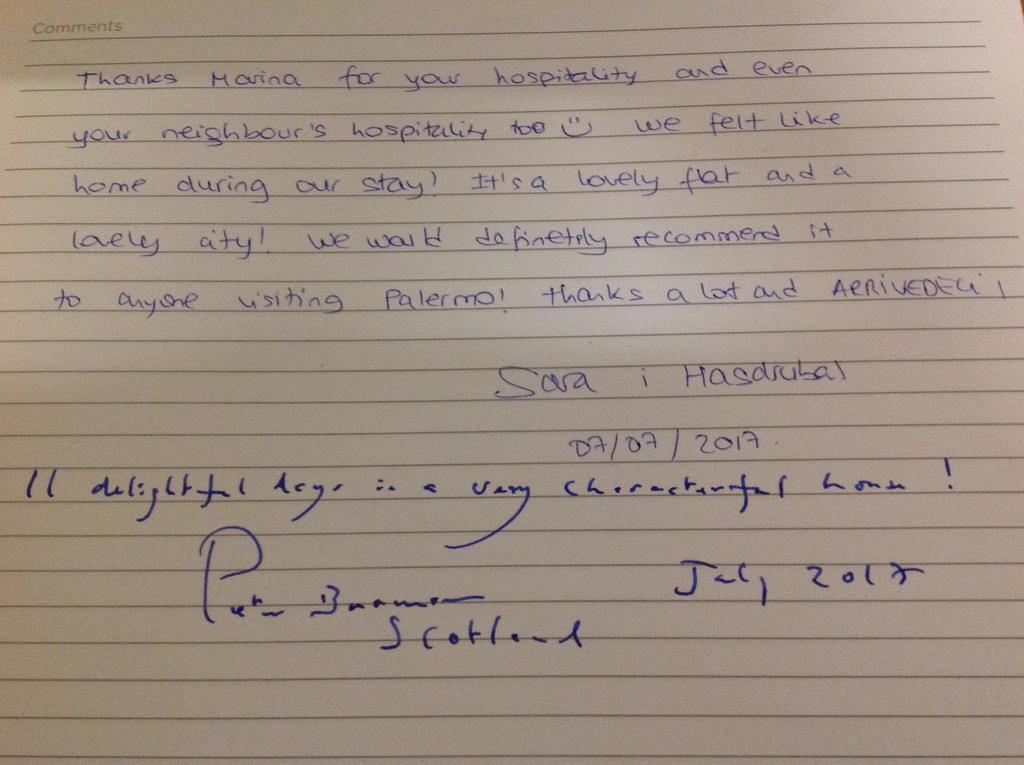 Comments
Thanks Marina for your hospitality and even
your neighbour's hospitality too We felt like
home during our stay! It's a lovely flat and a
lovely city! We would definetily recommend it
to anyone visiting Palermo! thanks a lot and ARRIVEDECI!
Sara i Hasdrubal
07/07/2017.
11 delightful days in a very characterful home!
Peter
July 2017
Scotland